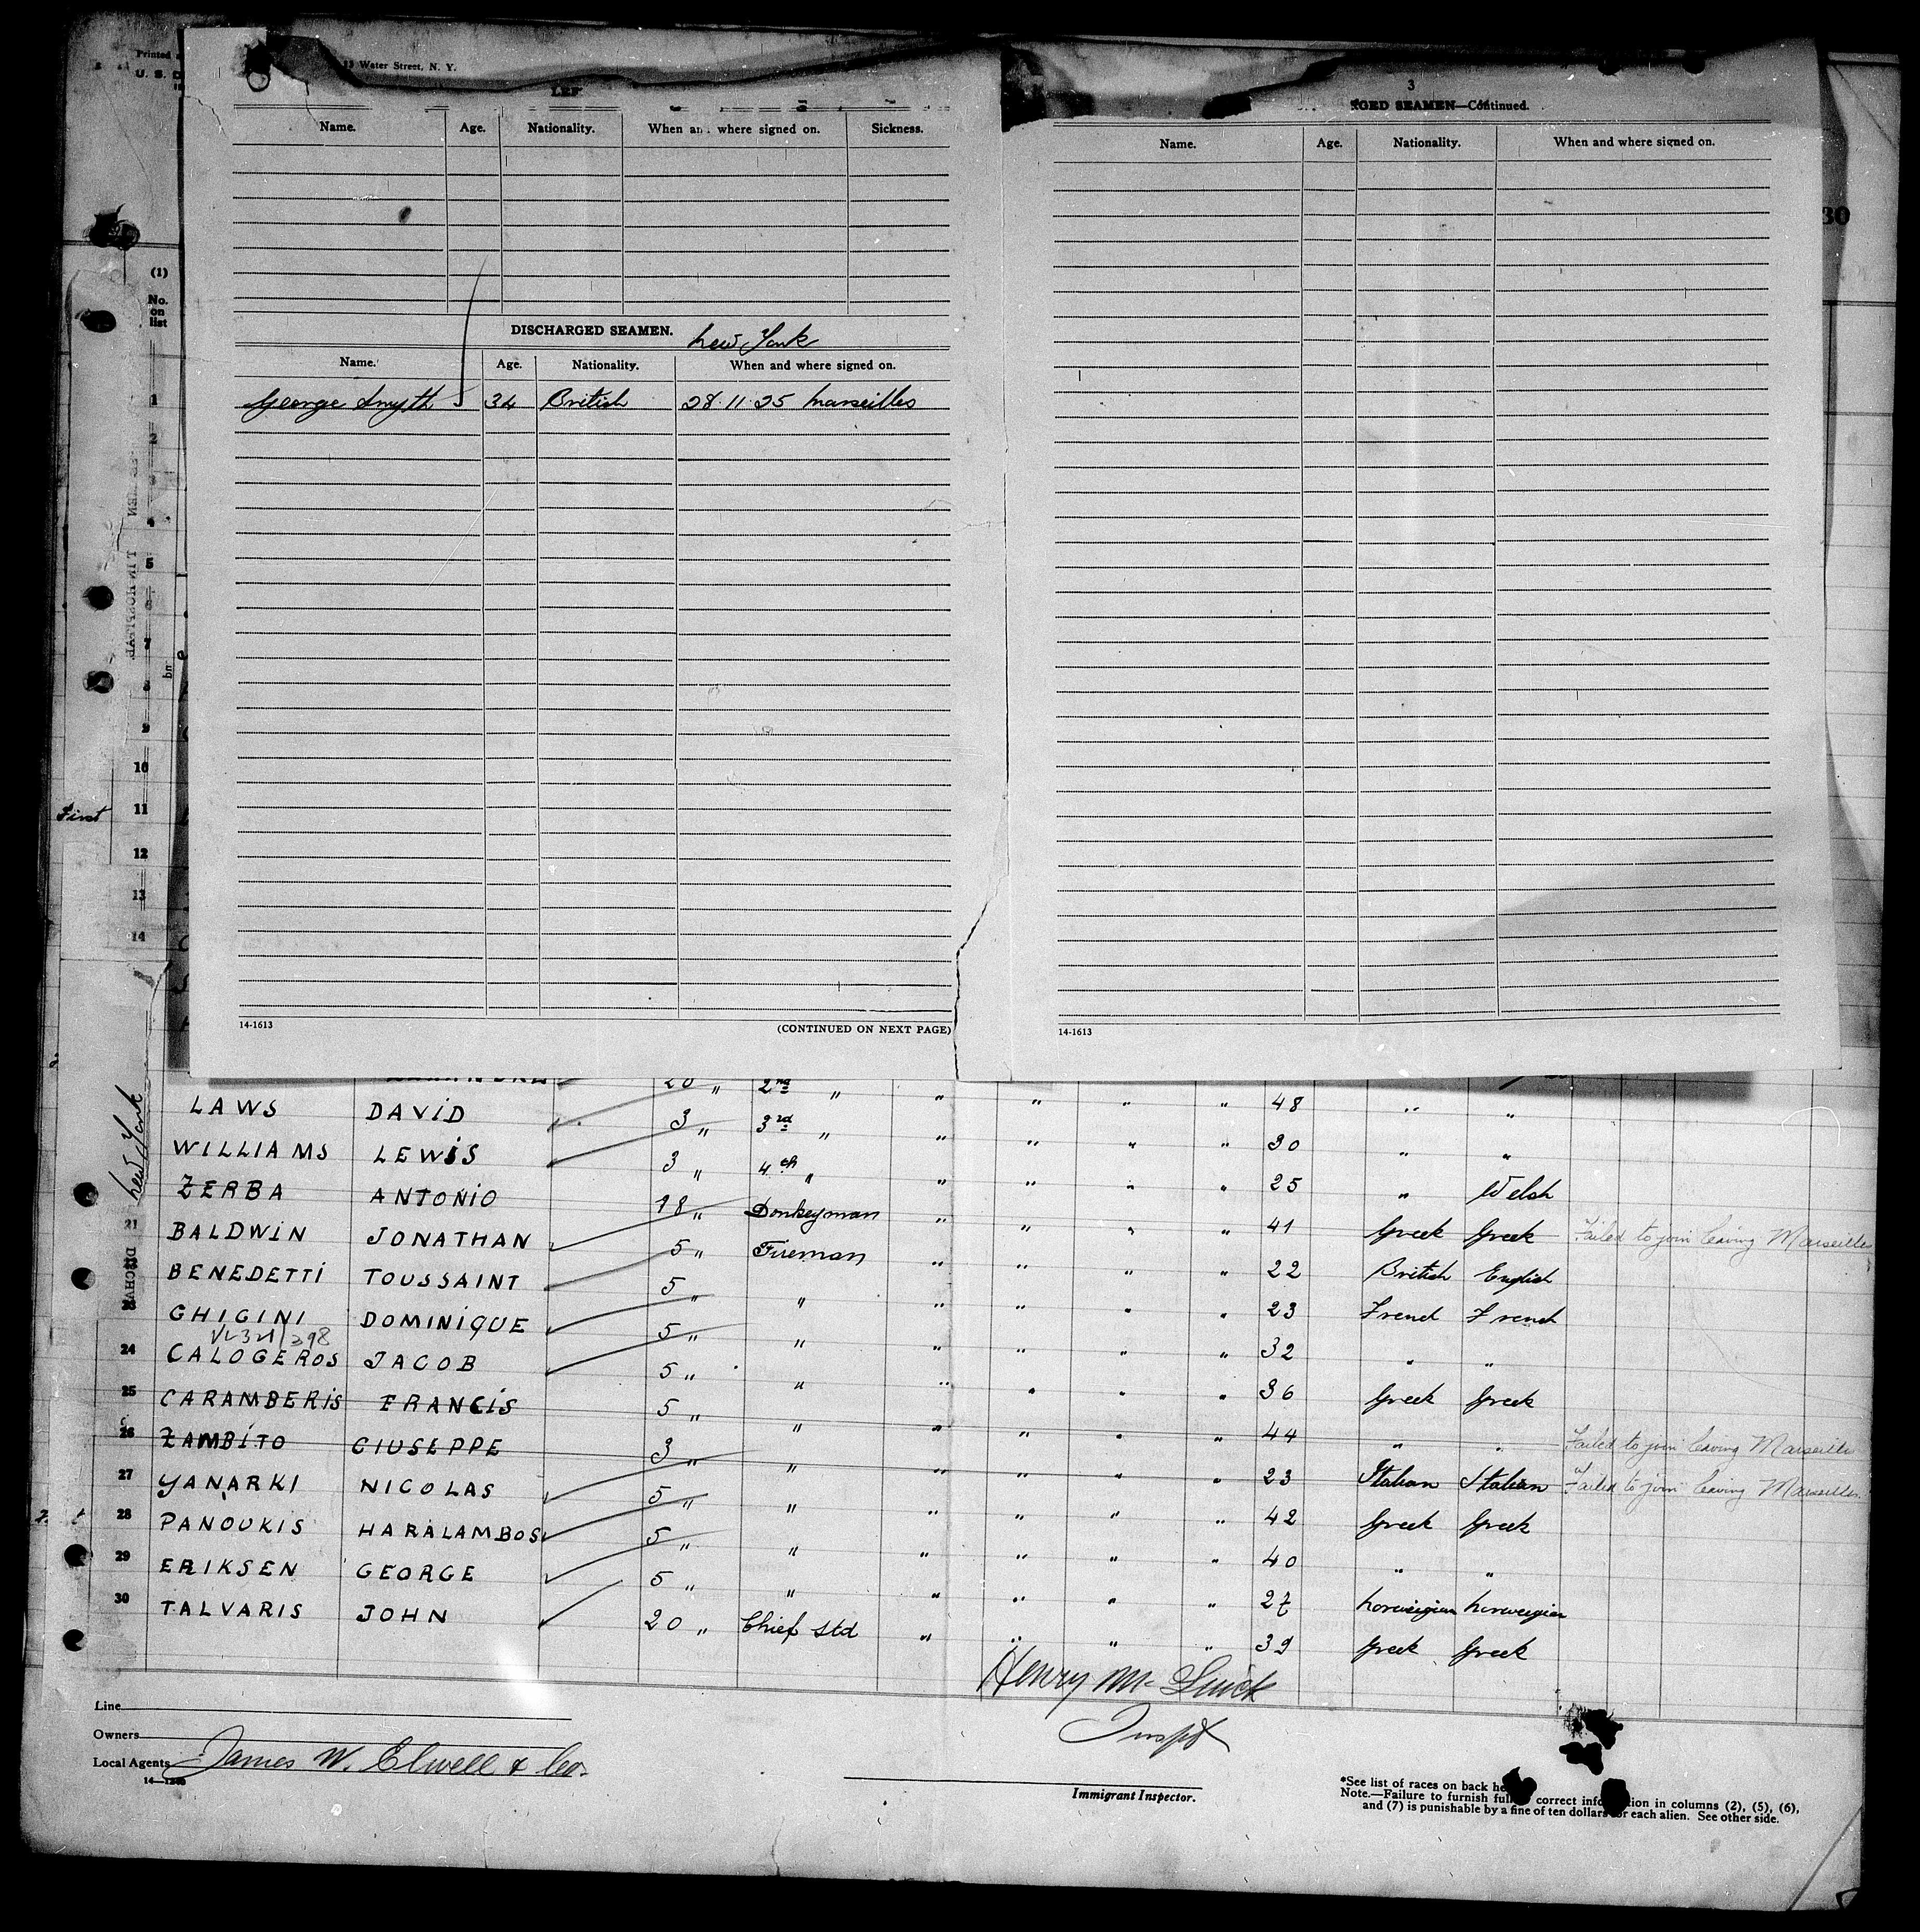 Printed
U. S. D
Water Street, N. Y.
Name. Age. Nationality. When and where signed on. Sickness.
DISCHARGED SEAMEN. New York
Name. Age. Nationality. When and where signed on.
George Smyth 34 British 28.11.25 Marseilles
14-1613 (CONTINUED ON NEXT PAGE)
3
GED SEAMEN—Continued.
Name. Age. Nationality. When and where signed on.
14-1613
30
(1)
No.
on
list
1
2
3
4
5
7
8
9
10
First 11
12
13
14
New York
20 " 2nd " " " " " 48 " "
LAWS DAVID 3 " 3rd " " " " " 30 " "
WILLIAMS LEWIS 3 " 4th " " " " " 25 " Welsh
ZERBA ANTONIO 18 " Donkeyman " " " " 41 Greek Greek Failed to join leaving Marseilles
21 BALDWIN JONATHAN 5 " Fireman " " " " 22 British English
BENEDETTI TOUSSAINT 5 " " " " " " 23 French French
23 GHIGINI DOMINIQUE 5 " " " " " " 32 " "
24 CALOGEROS JACOB 5 " " " " " " 36 Greek Greek
25 CARAMBERIS FRANCIS 5 " " " " " " 44 " " Failed to join leaving Marseilles
26 ZAMBITO GIUSEPPE 3 " " " " " " 23 Italian Italian Failed to join leaving Marseilles
27 YANARKI NICOLAS 5 " " " " " " 42 Greek Greek
28 PANOUKIS HARALAMBOS 5 " " " " " " 40 " "
29 ERIKSEN GEORGE 5 " " " " " " 27 Norweigian Norweegian
30 TALVARIS JOHN 20 " Chief Std " " " " 39 Greek Greek
Line
Owners
Local Agents James W. Elwell & Co.
Henry
Inspt
Immigrant Inspector.
*See list of races on back he
Note.—Failure to furnish full correct info tion in columns (2), (5), (6),
and (7) is punishable by a fine of ten dollars for each alien. See other side.